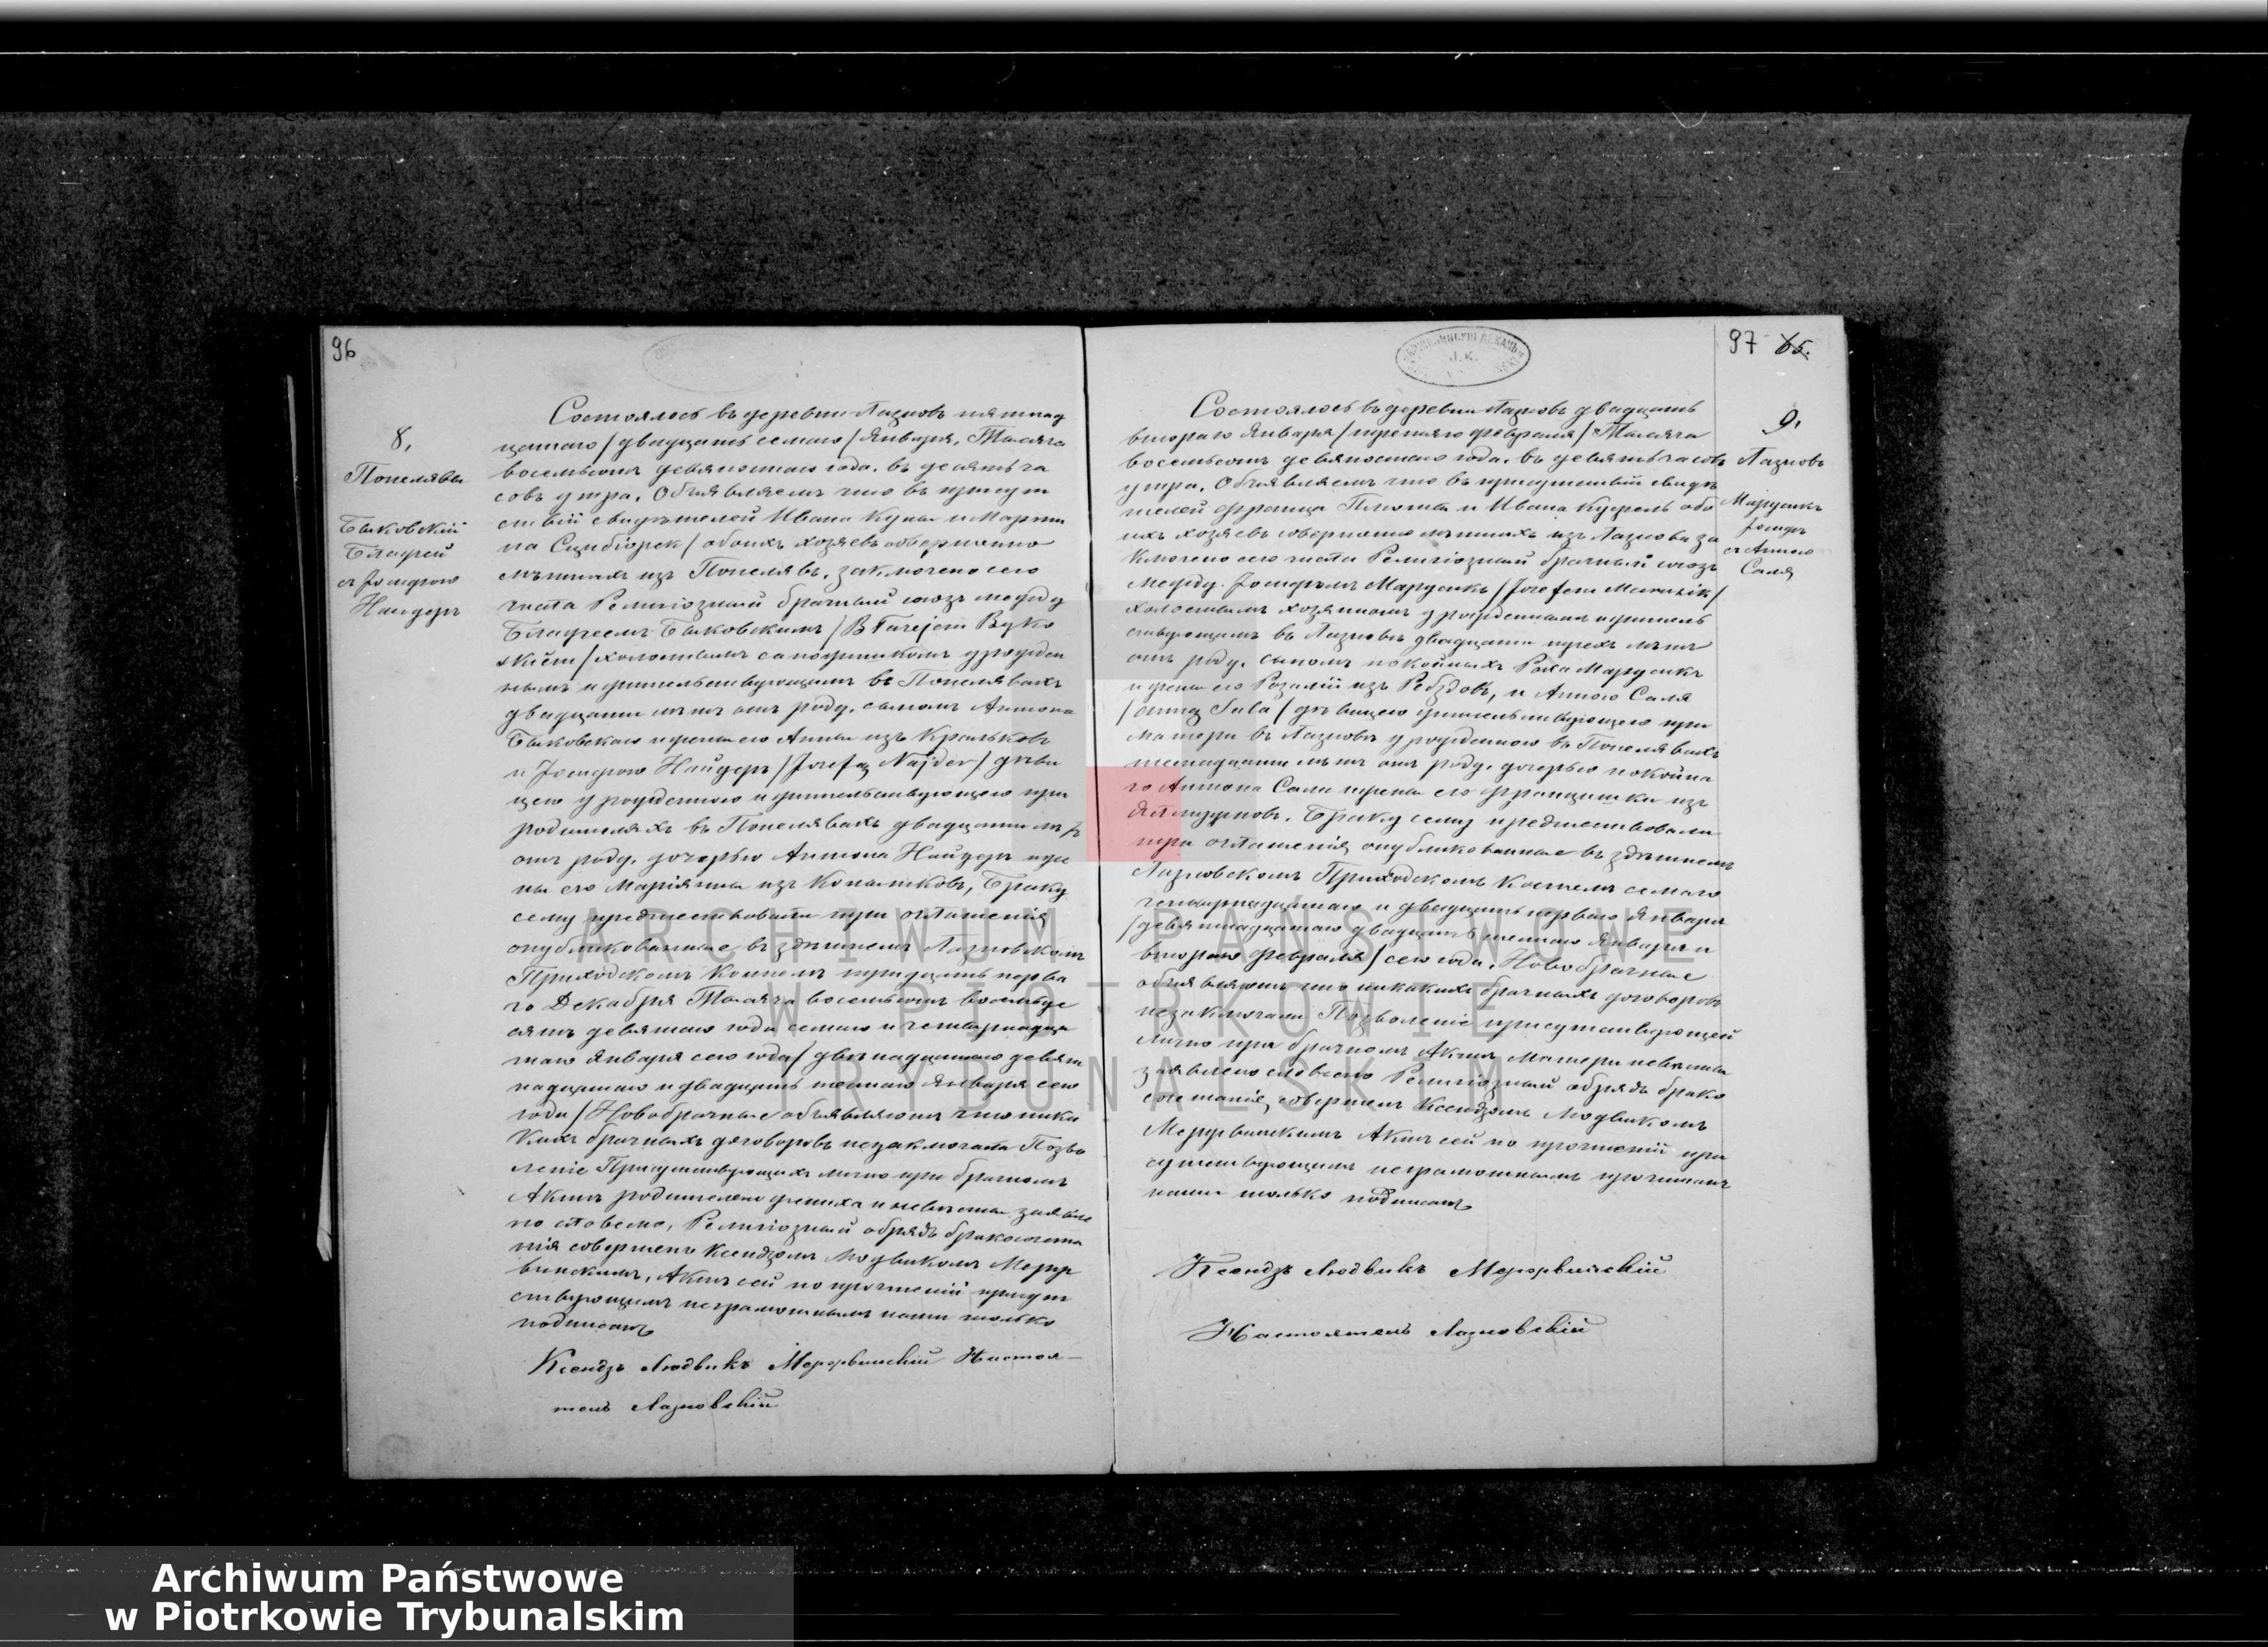 96
8.
Попелявы
Быковскій
Блажей
съ Іозефою
Найдеръ
Состоялось въ деревни Лазновъ пятнад
цатаго /двадцать седьмаго/ Января, Тысяча
восемьсотъ девяностаго года, въ десять ча
совъ утра. Объявляемъ что въ присут
ствіи свидѣтелей Ивана и Марти
на Сцибіорек/ обоихъ хозяевъ совершенно
лѣтнихъ изъ Попелявъ, заключено сего
числа Религіозный брачный союзъ между
Блажеемъ Быковскимъ /Błażejem Byko
skiem/ холостымъ сапожникомъ урожден
нымъ и жительствующимъ въ Попелявахъ
двадцати лѣтъ отъ роду, сыномъ Антона
Быковскаго и жены его Анны изъ Кральковъ
и Іозефою Найдеръ /Józefą Najder/ дѣви
цею урожденною и жительствующею при
родителяхъ въ Попелявахъ двадцати лѣтъ
отъ роду, дочерью Антона Найдеръ и же
ны его Маріянны изъ Браку
сему предшествовали три оглашенія
опубликованные въ здѣшнемъ Лазновскомъ
Приходскомъ Костелѣ тридцать перва
го Декабря Тысяча восемьсотъ восемьде
сятъ девятаго года седьмаго и четырнадца
таго Января сего года/ двѣнадцатаго девят
надцатаго и двадцать шестаго Января сего
года/ Новобрачные объявляютъ что ника
кихъ брачныхъ договоровъ незаключали Позво
леніе Присутствующихъ лично при брачномъ
Актѣ родителей жениха и невѣсты заявле
но словесно, Религіозный обрядъ бракосочета
нія совершенъ Ксендзомъ Людвикомъ Мержв
винскимъ, Актъ сей по прочтеніи присут
ствующимъ неграмотнымъ нами только
подписанъ
Ксендзъ Людвикъ Мержвинскій Настоя-
тель Лазновскій
97 65.
9.
Лазновъ
Марусикъ
Іозефъ
съ Анною
Саля
Состоялось въ деревни Лазновъ двадцать
втораго Января /третяго февраля/ Тысяча
восемьсотъ девяностаго года, въ девять часовъ
утра, Объявляемъ что въ присутствіи свидѣ
телей Франца и Ивана обо
ихъ хозяевъ совершеннолѣтнихъ изъ Лазнова за
ключено сего числа Религіозный брачный союзъ
между Іозефомъ Марусикъ /Józefem Marusik/
холостымъ хозяиномъ урожденнымъ и житель
ствующимъ въ Лазновѣ двадцати трехъ лѣтъ
отъ роду, сыномъ покойныхъ Роха Марусикъ
и жены его Розаліи изъ и Анною Саля
/Anną Sala/ дѣвицею жительствующею при
матери въ Лазновѣ урожденною въ Попелявахъ
шестнадцати лѣтъ отъ роду, дочерью покойна
го Антона Саля и жены его Францишки изъ
Браку сему предшествовали
три оглашенія опубликованные въ здѣшнемъ
Лазновскомъ Приходскомъ Костелѣ седьмаго
четырнадцатаго и двадцать перваго Января
/девятнадцатаго двадцать шестаго Января и
втораго Февраля/ сего года, Новобрачные
объявляютъ что никакихъ брачныхъ договоровъ
незаключали Позволеніе присутствующей
лично при брачномъ Актѣ матери невѣсты
заявлено словесно Религіозный обрядъ брако
сочетанія совершенъ Ксендзомъ Людвикомъ
Мержвинскимъ Актъ сей по прочтеніи при
сутствующимъ неграмотнымъ прочитанъ
нами только подписанъ
Ксендзъ Людвикъ Мержвинскій
Настоятель Лазновскій
ARCHIWUM PAŃSTWOWE
W PIOTRKOWIE
TRYBUNALSKIM
Archiwum Państwowe
w Piotrkowie Trybunalskim